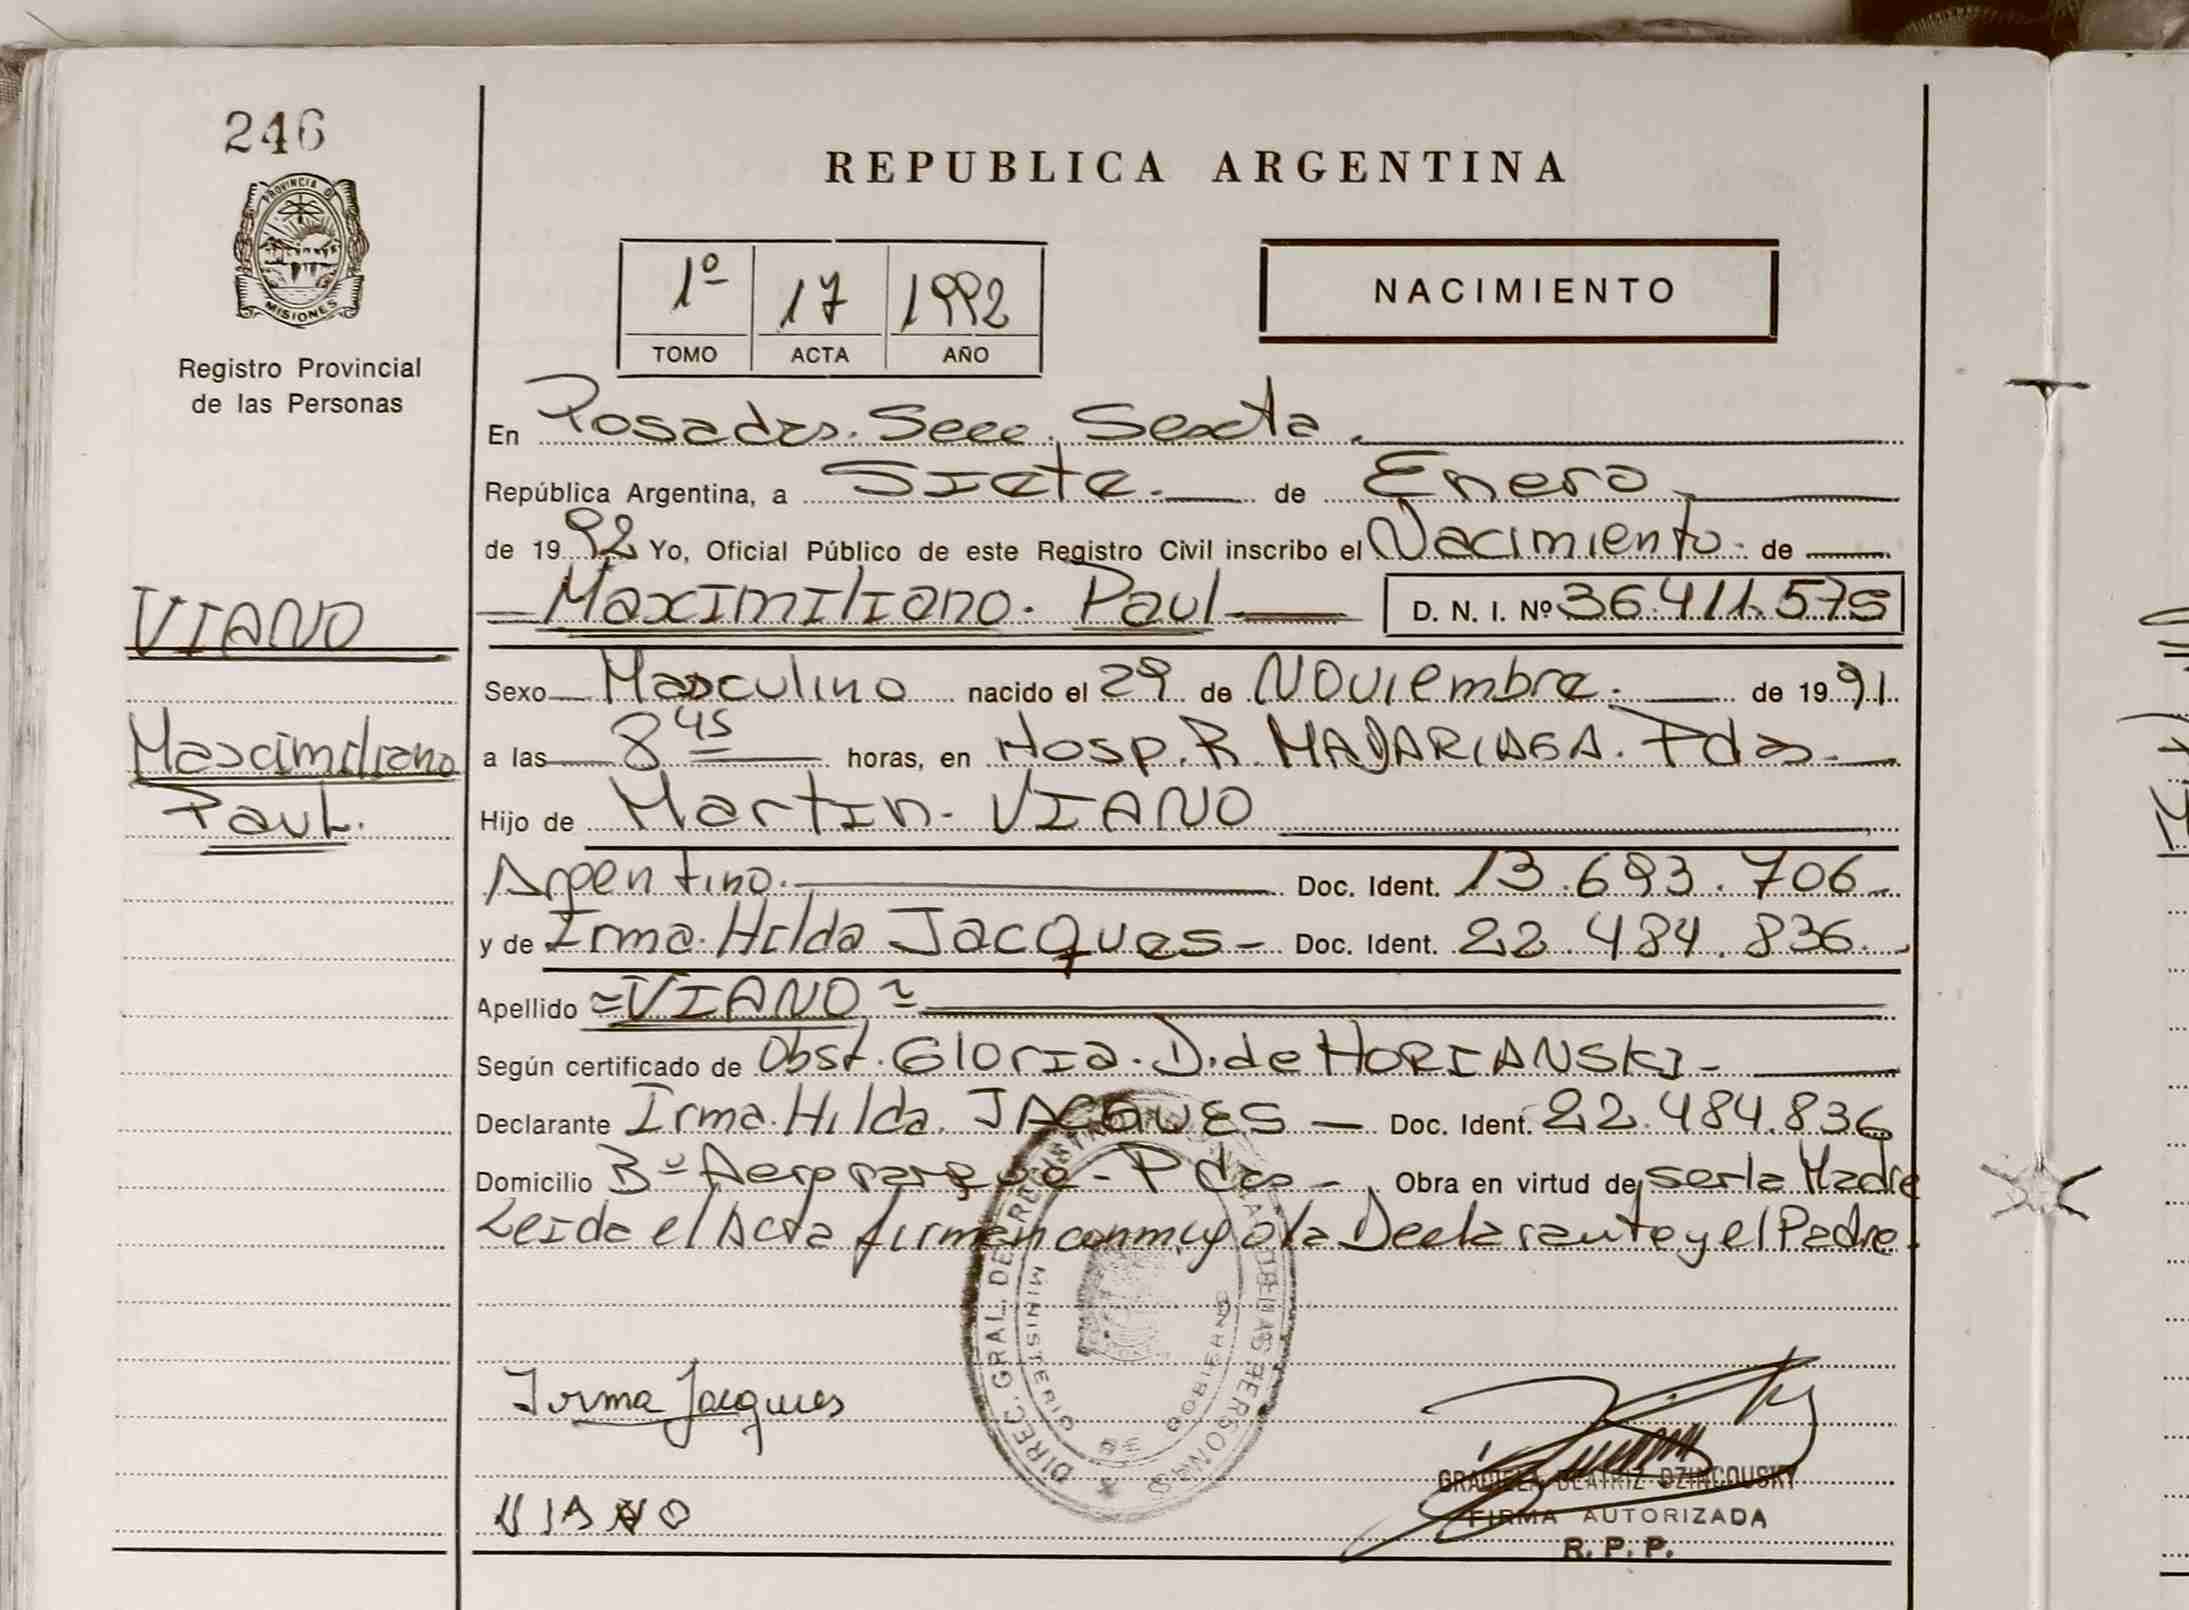 246
PROVINCIA DE
MISIONES
Registro Provincial
de las Personas
REPUBLICA ARGENTINA
1º 17 1992
TOMO ACTA AÑO
NACIMIENTO
En Posadas. Secc. Sexta.
República Argentina, a Siete.- de Enero
de 1992 Yo, Oficial Público de este Registro Civil inscribo el Nacimiento. de
Maximiliano. Paul D. N. I. Nº 36.411.575
VIANO
Maximiliano
Paul.
Sexo Masculino nacido el 29 de Noviembre. de 1991.
a las 8 45 horas, en Hosp. R. MADARIAGA. Pdas.
Hijo de Martin. VIANO
Argentino. Doc. Ident. 13.693.706
y de Irma. Hilda Jacques - Doc. Ident. 22.484.836.
Apellido =VIANO=
Según certificado de Obst. Gloria. D. de HORIANSKI -
Declarante Irma. Hilda. JACQUES - Doc. Ident. 22.484.836
Domicilio Bº Aeroparque - Pdas - Obra en virtud de ser la Madre
Leida el Acta firman conmigo la Declarante y el Padre.
DIREC. GRAL. DE DE LAS PERSONAS
MINISTERIO DE GOBIERNO
Irma Jacques
VIANO
GRACIELA BEATRIZ DZINCOUSKY
FIRMA AUTORIZADA
R. P. P.